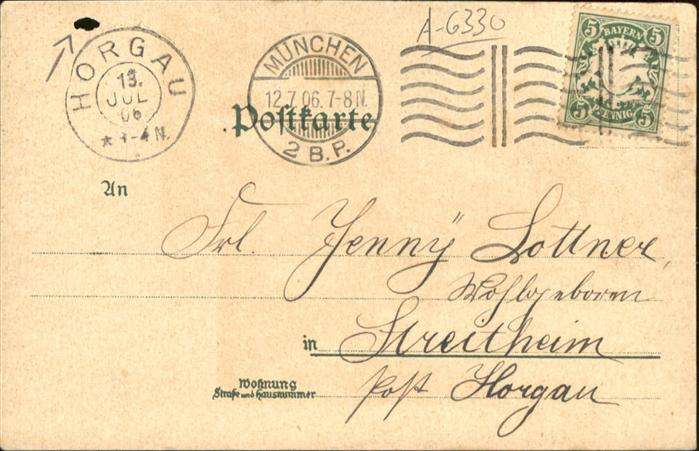 A-6330
HORGAU
13.
JUL
06
★ 1-4 N.
MÜNCHEN
12.7.06.7-8N.
2 B.P.
BAYERN
5 5
5 PFENNIG 5
Postkarte
An
Frl. Jennÿ Lottner,
Wohlgeboren
in Streitheim
Wohnung
Straße und Hausnummer
Post Horgau